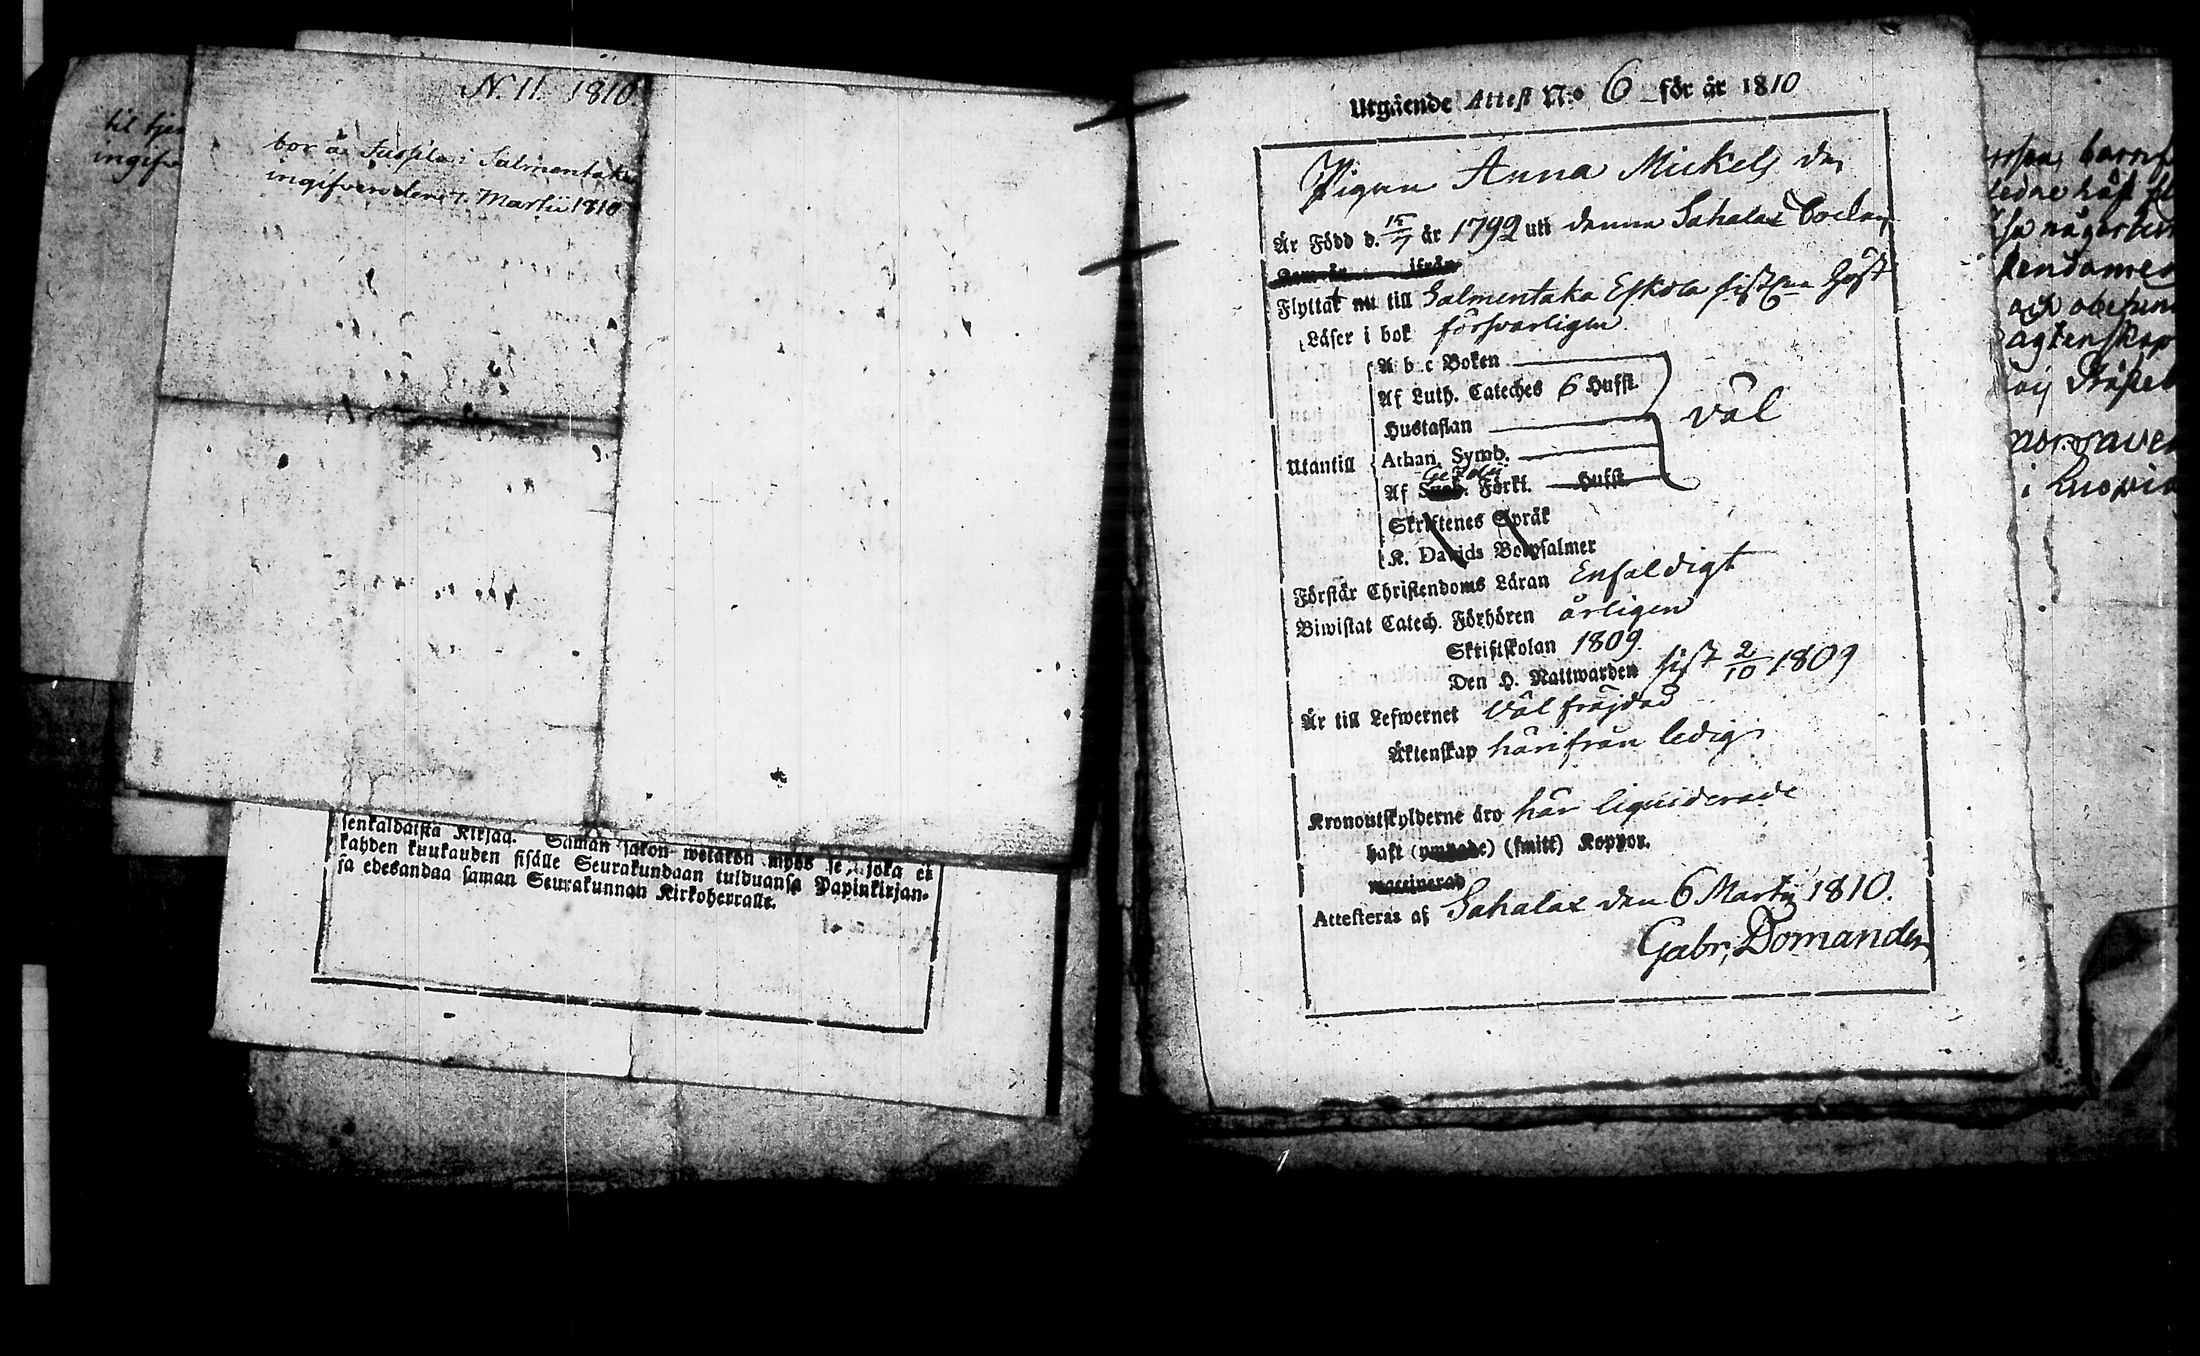 N. 11. 1810
til tjen
ingifv
bor å Jussila i Salmentaka
ingifven den 7. Martii 1810
senkaldaista Kirjaa. Saman sakon wetäkön myös se, joka ei
kahden kuukauden sisälle Seurakundaan tulduansa Papinkirjan-
sa edesandaa saman Seurakunnan Kirkoherralle.
Utgående Attest N:o 6 för år 1810
Pigan Anna Mickels dr
Är Född d. 15/7 år 1792 uti denna Sahalax Socken
Kom år ifrån
Flyttat nu till Salmentaka Eskola sistl. Höst
Läser i bok försvarligen
A b c Boken
Af Luth. Cateches 6 Hufst.
Hustaflan
väl
Utantill
Athan. Symb.
Af Sveb. Förkl. Hufst.
Skriftenes Språk
K. Davids Botpsalmer
Förstår Christendoms Läran Enfaldigt
Biwistat Catech. Förhören årligen
Skriftskolan 1809.
Den H. Nattwarden sist 2/10 1809
Är till Lefwernet Väl frägdad
Äktenskap härifrån ledig
Kronoutskylderne äro här liquiderade
haft (ympade) (smitt) Koppor.
vaccinerad
Attesteras af Sahalax den 6 Martii 1810.
Gabr. Domander
barnf
någor
kendomen
ägtenskap
i Kuopio